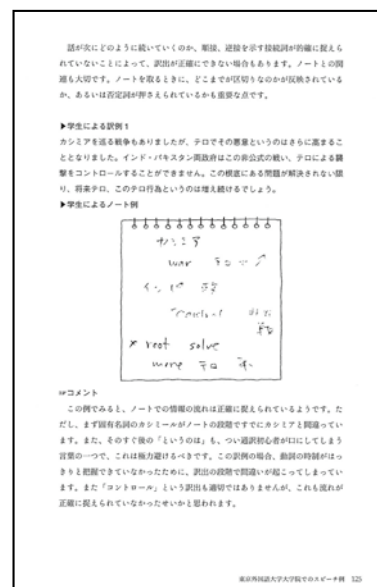 話が次にどのように続いていくのか、順接、逆接を示す接続詞が的確に捉えら
れていないことによって、訳出が正確にできない場合もあります。ノートとの関
連も大切です。ノートを取るときに、どこまでが区切りなのかが反映されている
か、あるいは否定詞が押さえられているかも重要な点です。
▶学生による訳例1
カシミアを巡る戦争もありましたが、テロでその悪意というのはさらに高まるこ
ととなりました。インド・パキスタン両政府はこの非公式の戦い、テロによる襲
撃をコントロールすることができません。この根底にある問題が解決されない限
り、将来テロ、このテロ行為というのは増え続けるでしょう。
▶学生によるノート例
カシミア
war テロ ↗
イン パ 政
control
* root solve
more テロ
☞コメント
この例でみると、ノートでの情報の流れは正確に捉えられているようです。た
だし、まず固有名詞のカシミールがノートの段階ですでにカシミアと間違ってい
ます。また、そのすぐ後の「というのは」も、つい通訳初心者が口にしてしまう
言葉の一つで、これは極力避けるべきです。この訳例の場合、動詞の時制がはっ
きりと把握できていなかったために、訳出の段階で間違いが起こってしまってい
ます。また「コントロール」という訳出も適切ではありませんが、これも流れが
正確に捉えられていなかったせいかと思われます。
東京外国語大学大学院でのスピーチ例 125